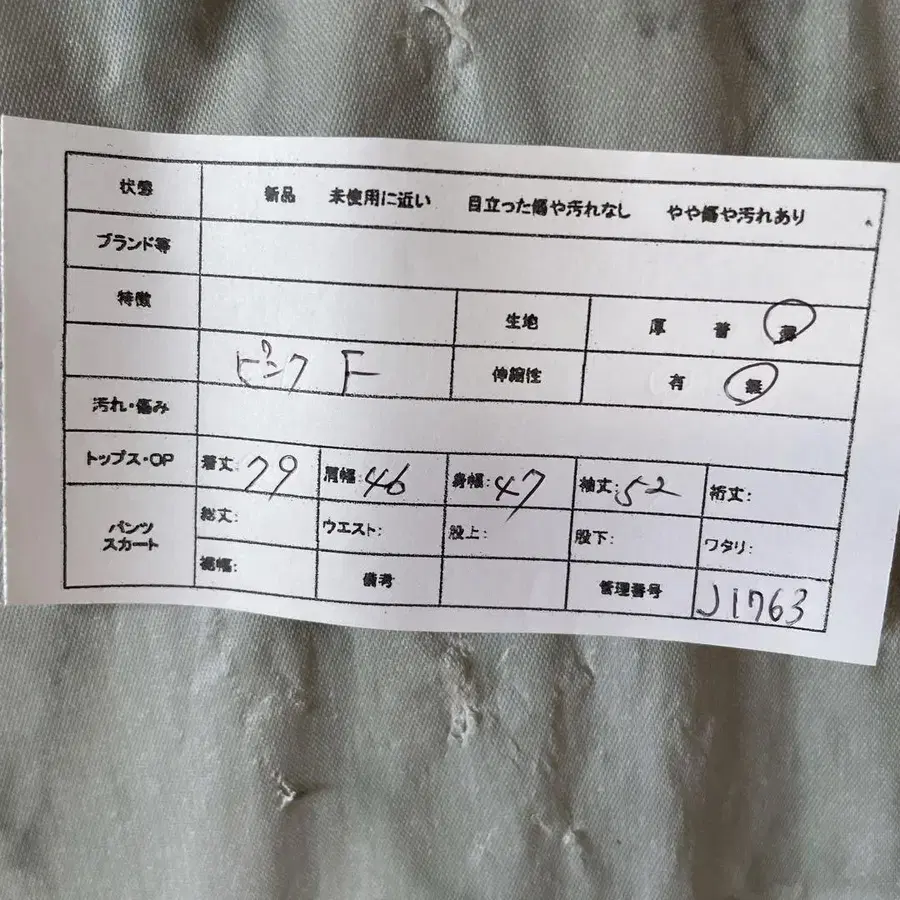 状態 新品 未使用に近い 目立った傷や汚れなし やや傷や汚れあり
ブランド等
特徴 生地 厚 普 薄
ピンク F 伸縮性 有 無
汚れ・傷み
トップス・OP 着丈: 79 肩幅: 46 身幅: 47 袖丈: 52 裄丈:
パンツ スカート 総丈: ウエスト: 股上: 股下: ワタリ:
裾幅: 備考 管理番号 J1763